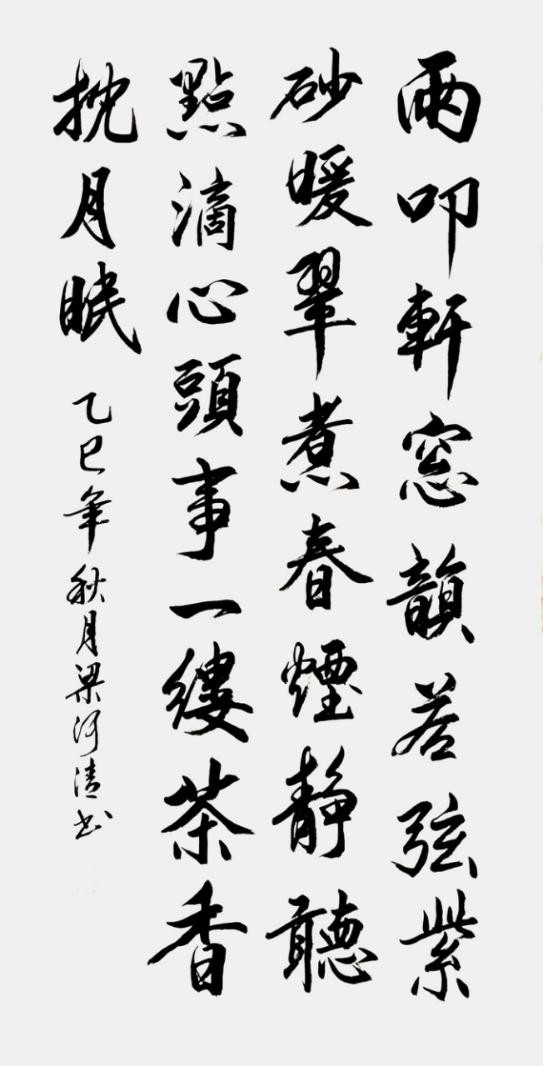 雨叩軒窓韻若弦紫
砂暖翠煮春煙静聽
點滴心頭事一縷茶香
枕月眠
乙巳年秋月梁河清书